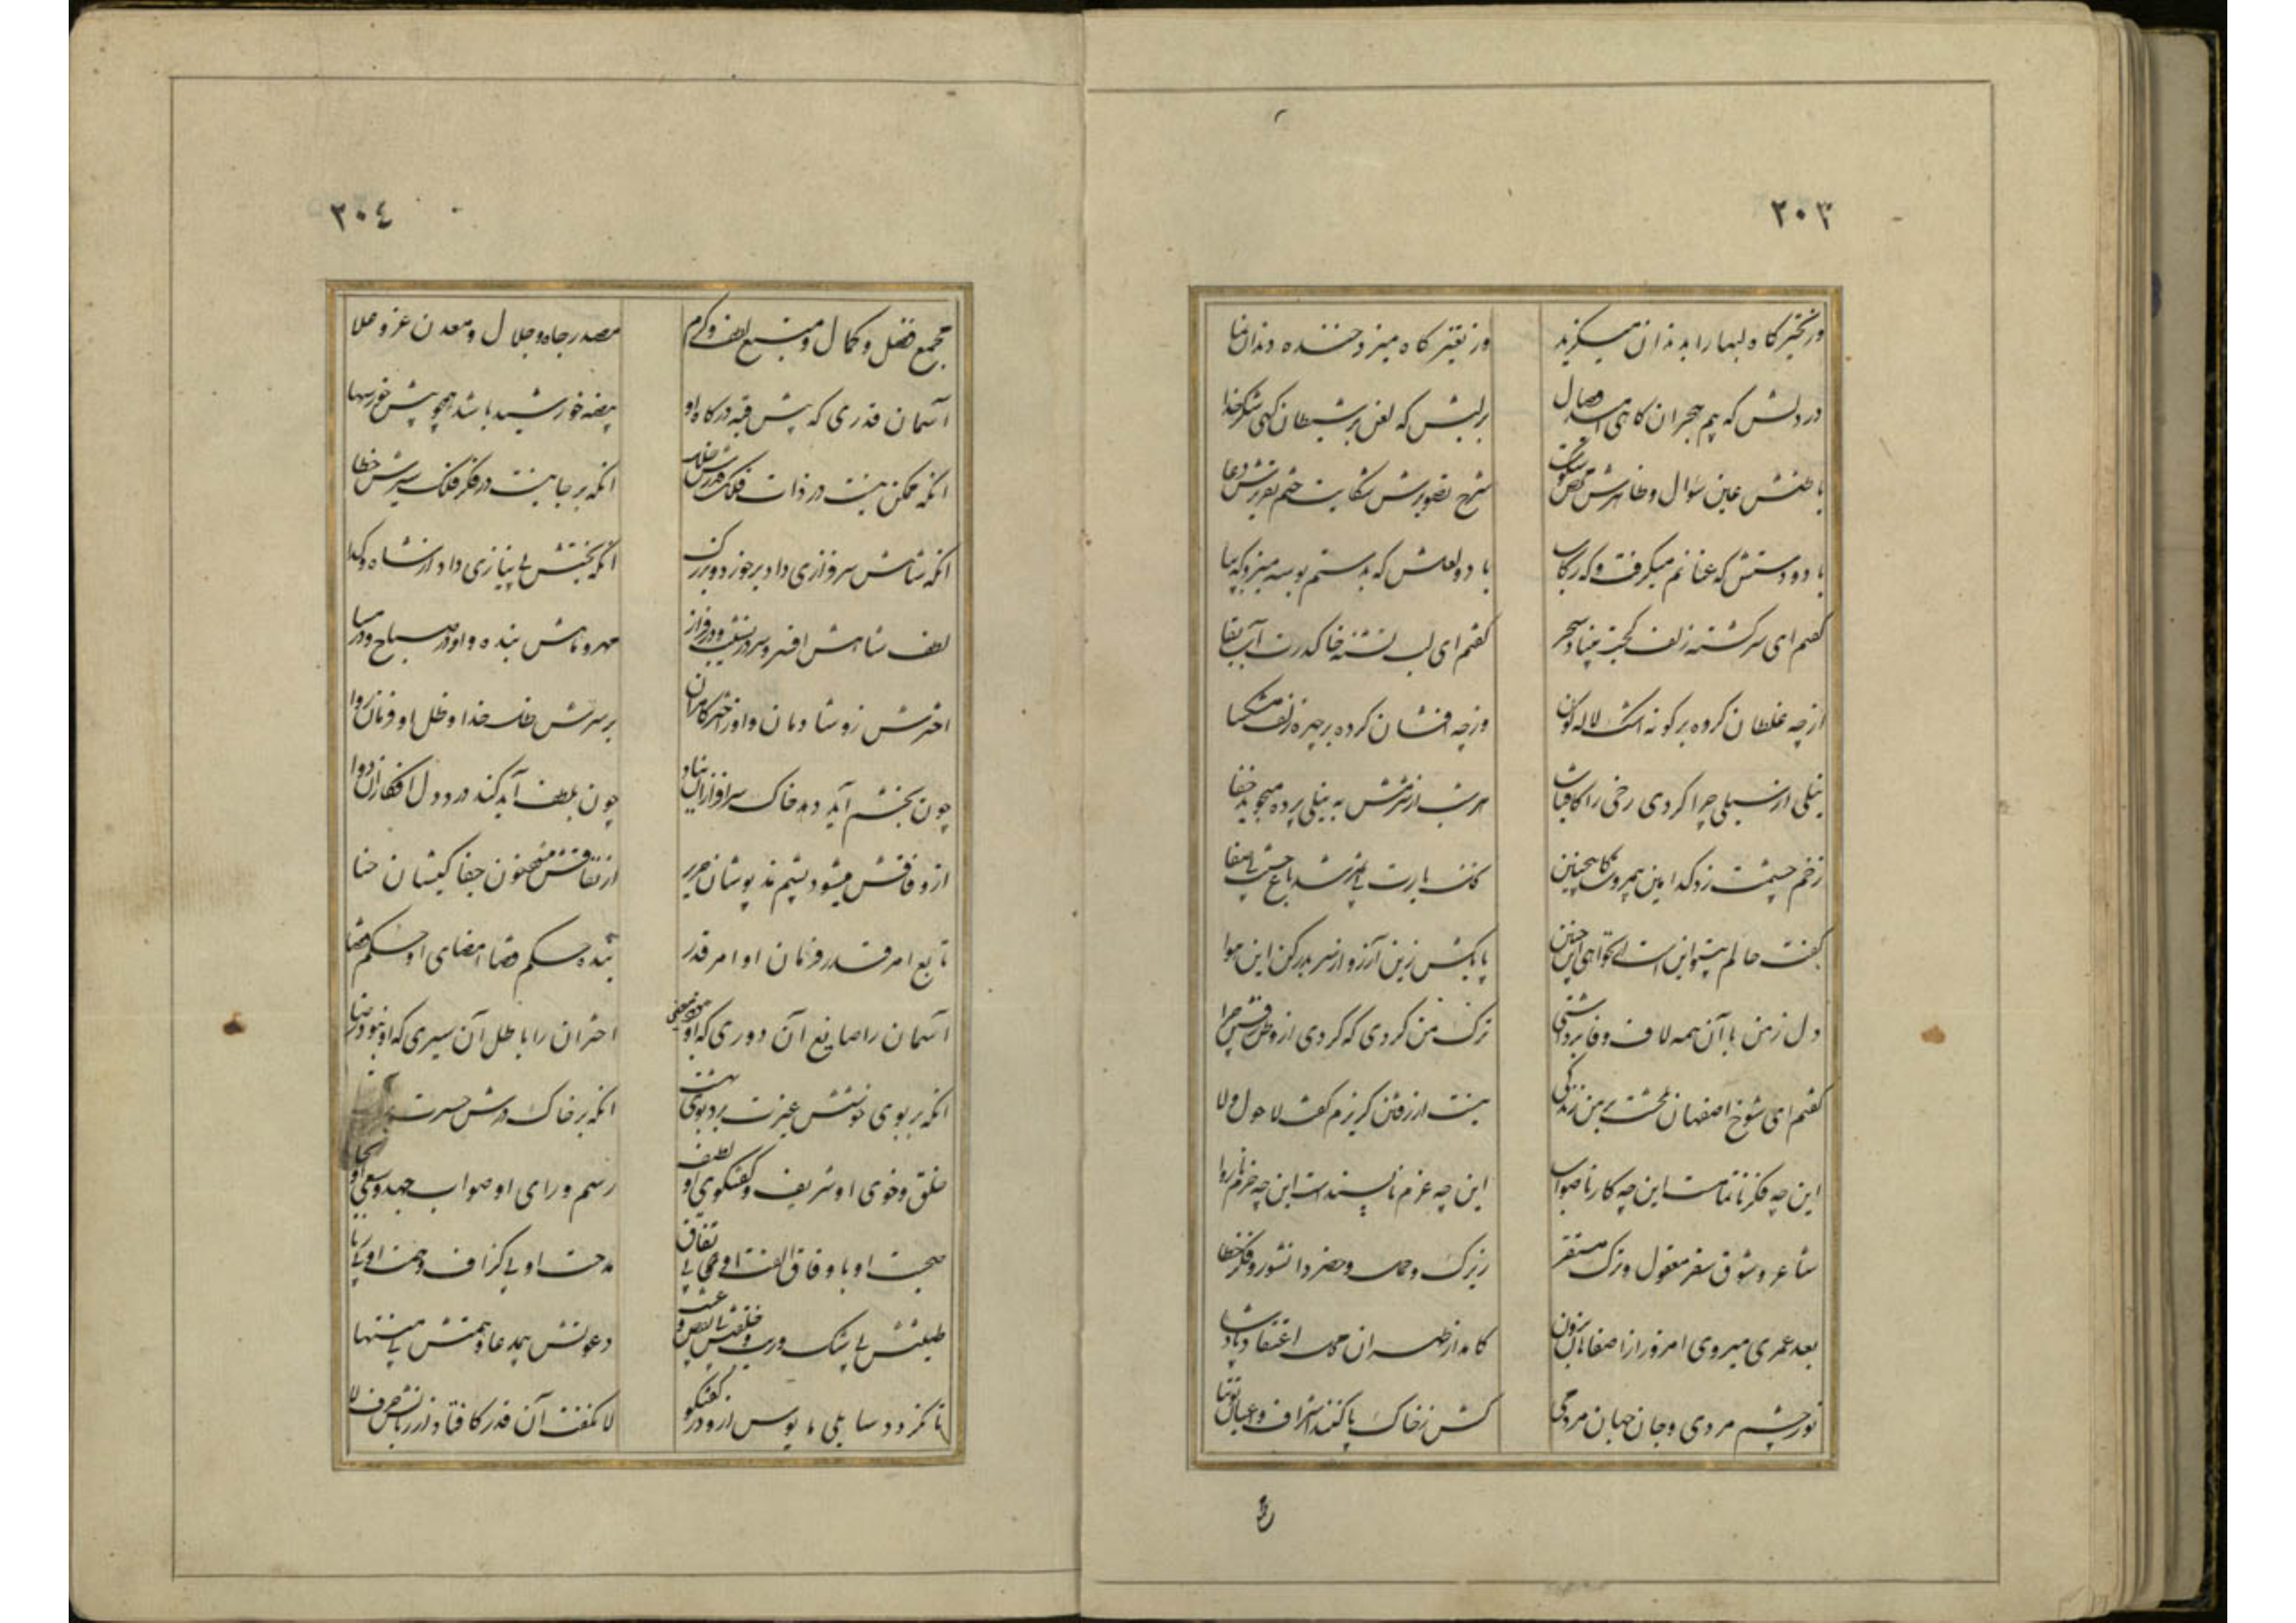 ۲۰۳
وز تحیر گاه لبها را بدندان میگزید
وز تغیر گاه میزد خنده دندان نما
در دلش که بیم هجران گاهی امید وصال
بر لبش که لعن بر شیطان گهی شکر خدا
باطنش عین سؤال و ظاهرش محض سکوت
شرح تصویرش شکایت ختم تقریرش دعا
با دو دستش که عنانم میگرفت و که رکاب
با دو لعلش که بدستم بوسه میزد که بپا
گفتم ای سرگشته زلف کجت سحر
گفتم ای لب تشنه خاک درت آب بقا
از چه غلطان کرده بر گونه اشک لاله گون
وز چه افشان کرده بر چهره زلف مشکسا
نیلی از سیلی چرا کردی رخی را کافتاب
هر شب از شرمش به نیلی پرده میجوید خفا
زخم چشمت زد کدامین
باغ حسنت بی صفا
گفت حالم این است
پا بکش زین آرزو از سر بدر کن این هوا
دل ز من با آن همه لاف وفا برداشتی
ترک من کردی که کردی از چرا
گفتم ای شوخ اصفهان بی من زندگی
نیست از رفتن گریزم گفت لا حول و لا
این چه فکر ناتمامست این چه کار ناصواب
این چه عزم ناپسند است این چه ناروا
شاعر و شوق سفر معقول و ترک مستقر
زیرک و حضر دانشور و فکر خطا
بعد عمری میروی امروز از اصفاهان برون
کامد از طهران
نور چشم مردمی و جان جهان مردمی
کش ز خاک پا کنند اشراف و اعیان توتیا
۲۰۴
مجمع فضل و کمال و منبع لطف و کرم
مصدر جاه و جلال و معدن عز و علا
آسمان قدری که پیش قبه درگاه او
بیضه خورشید باشد همچو پیش خور سها
انکه ممکن نیست در ذات فلک قدرش خلل
انکه بر جا نیست در فکر فلک سیرش خطا
انکه شاهش سرفرازی داد بر خورد و بزرگ
انکه بختش بی نیازی داد از شاه و گدا
لطف شاهش افسر و سر در نشیب و در فراز
مهر و ماهش بنده و او در صباح و در مسا
اخترش زو شادمان و او ز اختر کامران
بر سرش ظل خدا و ظل او فرمان روا
چون بخشم آید دهد خاک سرافرازان بباد
چون بلطف آید کند درد دل افکاران دوا
از وفاقش میشود پشم نمد پوشان حریر
از نفاقش جفا کیشان حنا
تابع امر قدر فرمان او امر قدر
بنده حکم قضا امضای او حکم قضا
آسمان را ضایع آن دوری که او
اختران را باطل آن سیری که او نبود رضا
انکه بر بوی خوشش عبرت برد بوی بهشت
انکه بر خاک درش حسرت
خلق و خوی او شریف و گفتگوی او لطیف
رسم و رای او صواب جهد و سعی او بجا
صحبت او با وفاق الفت او بی نفاق
مدحت او بی گزاف و همت او بی ریا
طینتش بی شک و ریب و خلقتش بی نقص و عیب
دعوتش بی مدعا و همتش بی منتها
تا نگردد سایلی مایوس ازو در گفتگو
لا نگفت آن قدر کافتاد از زبانش حرف لا